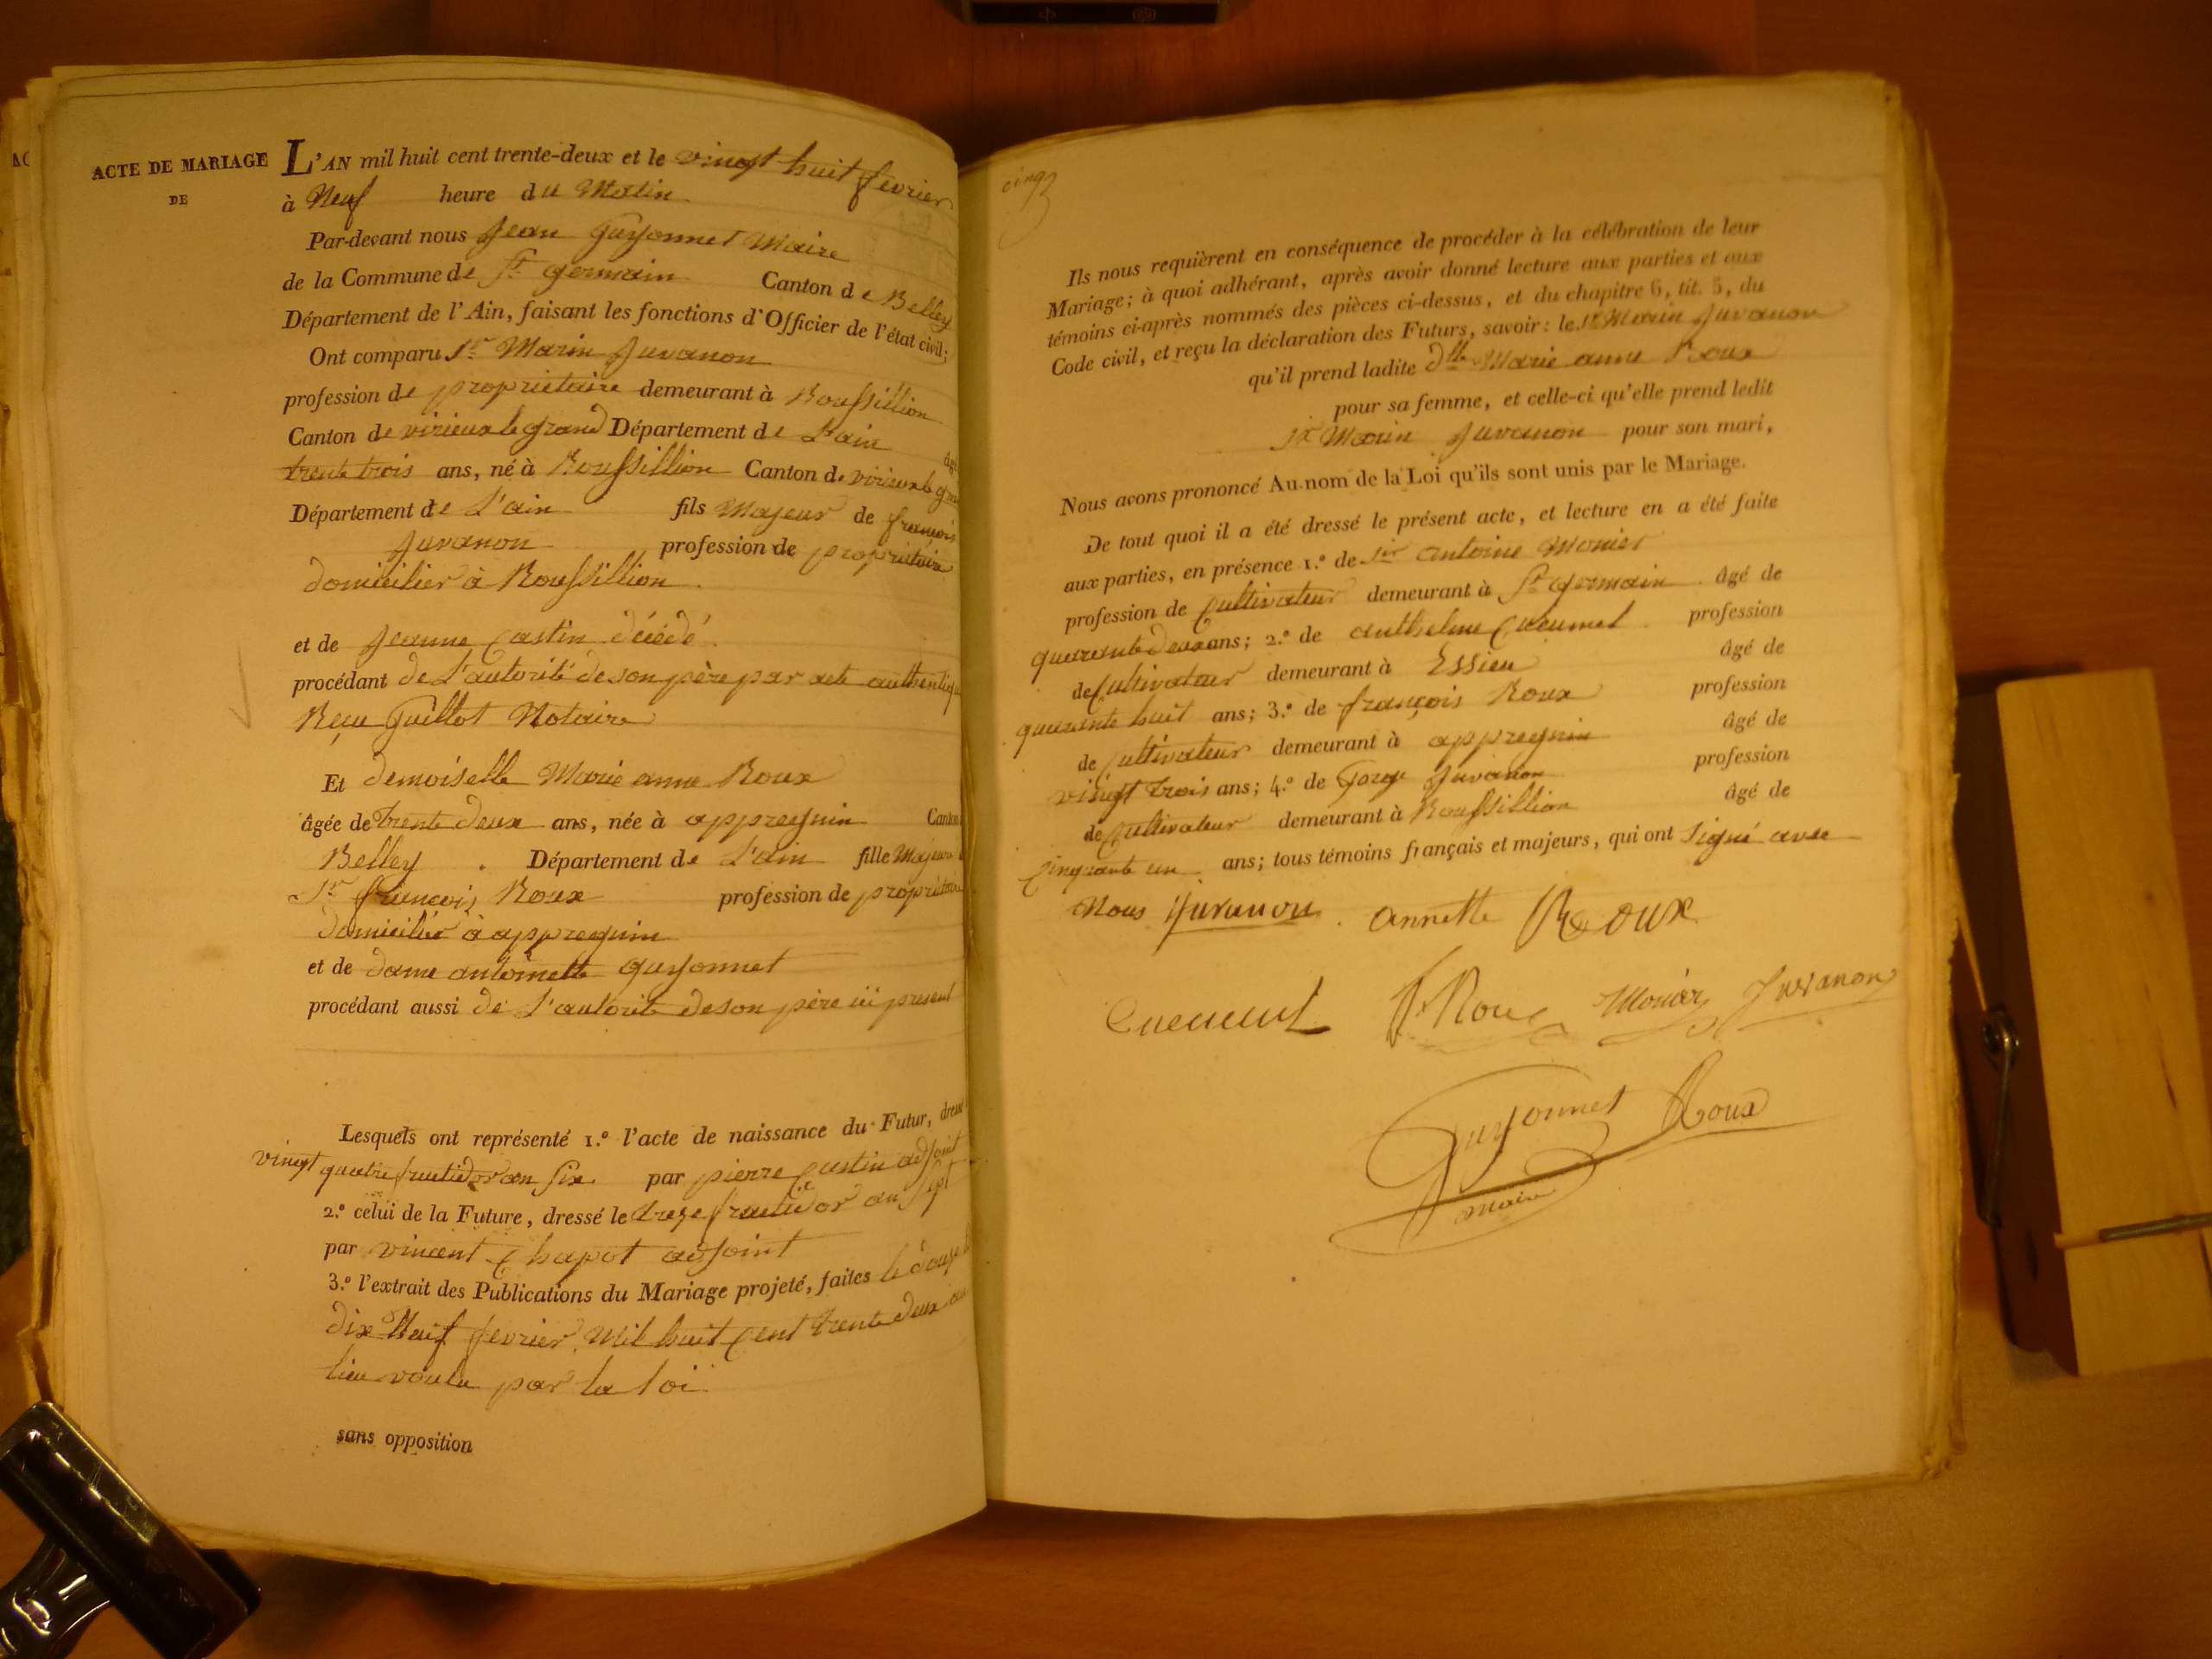 ACTE DE MARIAGE
DE
L'AN mil huit cent trente-deux et le vingt huit fevrier
à Neuf heure du Matin
Par-devant nous Jean Guyonnet Maire
de la Commune de St germain Canton de Belley
Département de l'Ain, faisant les fonctions d'Officier de l'état civil;
Ont comparu Sr Marin Juvanon
profession de proprietaire demeurant à Roussillion
Canton de virieux le grand Département de L'ain âgé
trente trois ans, né à Roussillion Canton de virieux le
Département de L'ain fils Majeur de françois
Juvanon profession de propriétaire
domicilier à Roussillion
et de Jeanne Castin décédé
procédant de L'autorité de son père par acte
Reçu Guillot Notaire
Et demoiselle Marie anne Roux
âgée de trente deux ans, née à appregnin Canton
Belley. Département de L'ain fille Majeure
Sr françois Roux profession de propriétaire
domicilié à appregnin
et de dame antoinette guyonnet
procédant aussi de L'autorité de son père ici présent
Lesquels ont représenté 1.° l'acte de naissance du Futur,
vingt quatre fructidor an six par pierre Castin adjoint
2.° celui de la Future, dressé le treze fructidor an sept
par vincent Chapot adjoint
3.° l'extrait des Publications du Mariage projeté, faites le douze
dix Neuf fevrier Mil huit Cent trente deux au
lieu voulu par la loi
sans opposition
cinq
Ils nous requièrent en conséquence de procéder à la célébration de leur
Mariage; à quoi adhérant, après avoir donné lecture aux parties et aux
témoins ci-après nommés des pièces ci-dessus, et du chapitre 6, tit. 5, du
Code civil, et reçu la déclaration des Futurs, savoir: le Sr Marin Juvanon
qu'il prend ladite dlle Marie anne Roux
pour sa femme, et celle-ci qu'elle prend ledit
Sr Marin Juvanon pour son mari,
Nous avons prononcé Au nom de la Loi qu'ils sont unis par le Mariage.
De tout quoi il a été dressé le présent acte, et lecture en a été faite
aux parties, en présence 1.° de Sir antoine Monier
profession de Cultivateur demeurant à St germain âgé de
quarante deux ans; 2.° de anthelme Cueumel profession
de Cultivateur demeurant à Essieu âgé de
quarante huit ans; 3.° de françois Roux profession
de Cultivateur demeurant à appregnin âgé de
vingt trois ans; 4.° de Juvanon profession
de Cultivateur demeurant à Roussillion âgé de
Cinquante un ans; tous témoins français et majeurs, qui ont signé avec
Nous Juvanon annette Roux
f Roux Monier Juvanon
Guyonnet Roux
maire